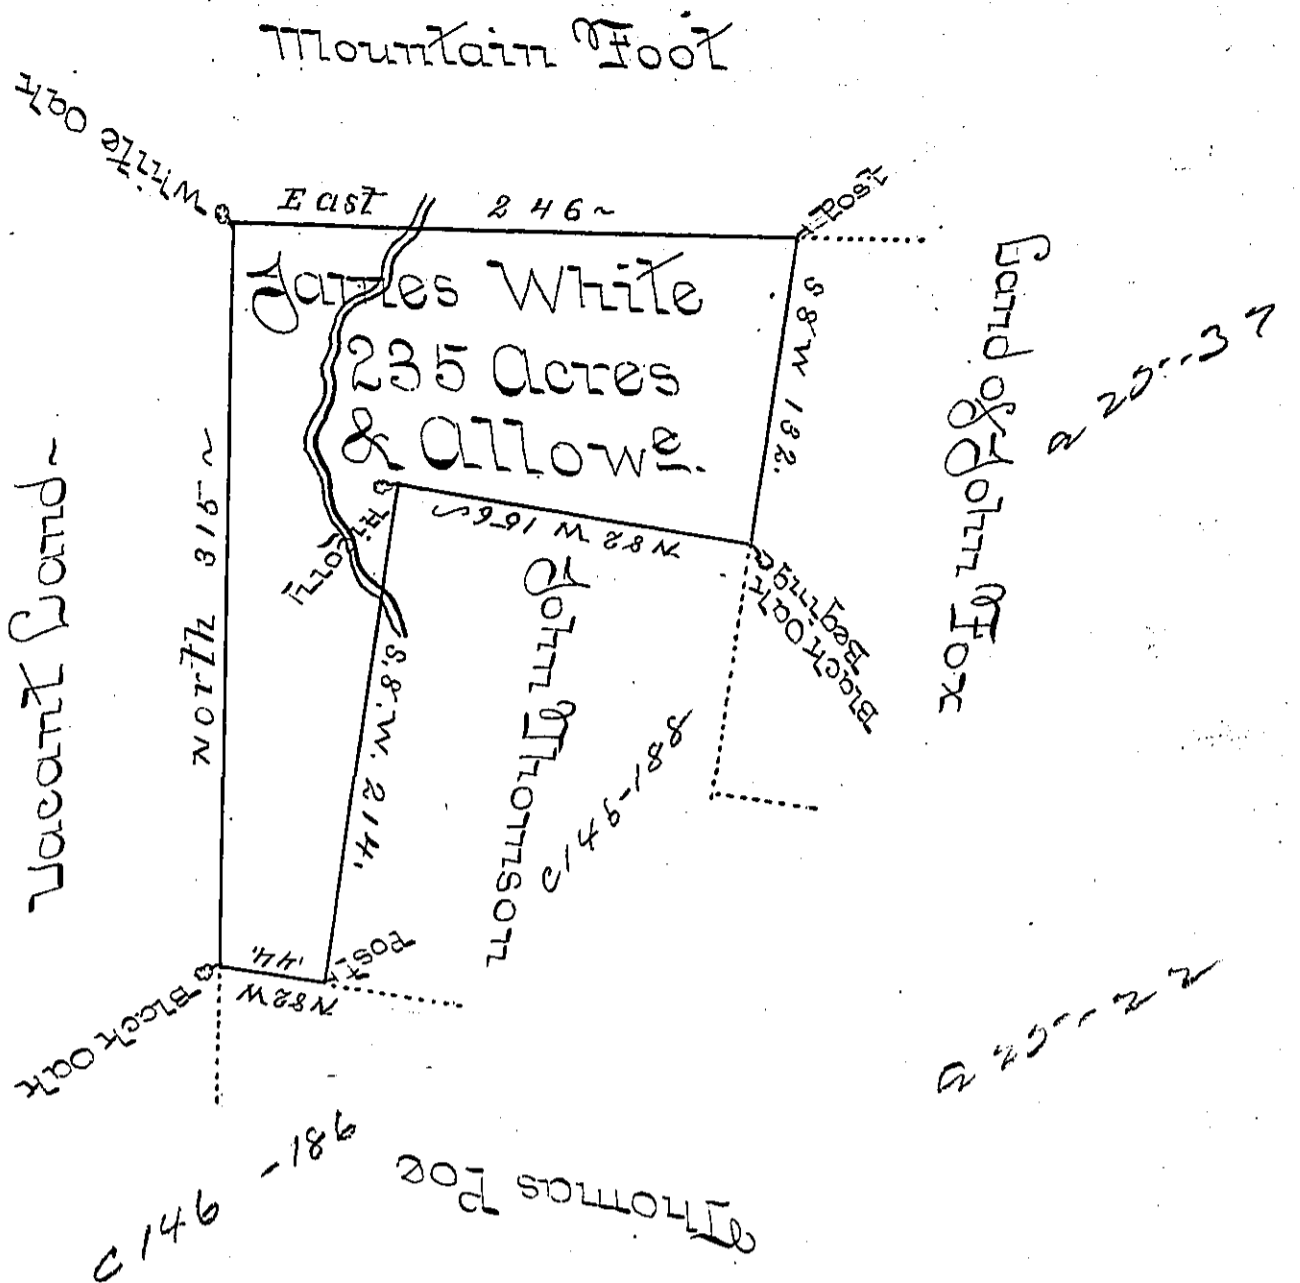 Mountain Foot
White Oak
East 246~
Post
James White
235 Acres
& Allowe.
S8W 132.
Land of John Fox
a 25--37
Vacant Land~
North 315~
Hicory
N82W 156~
Begining
Black Oak
John Thomson
C146-188
S.8.W. 214.
Post
N82W
44.
Black Oak
a 25--22
C146-189
Thomas Poe